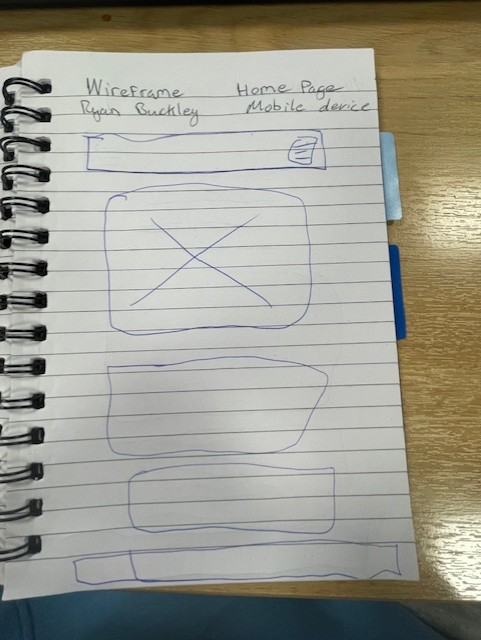 Wireframe Home Page
Ryan Buckley Mobile device